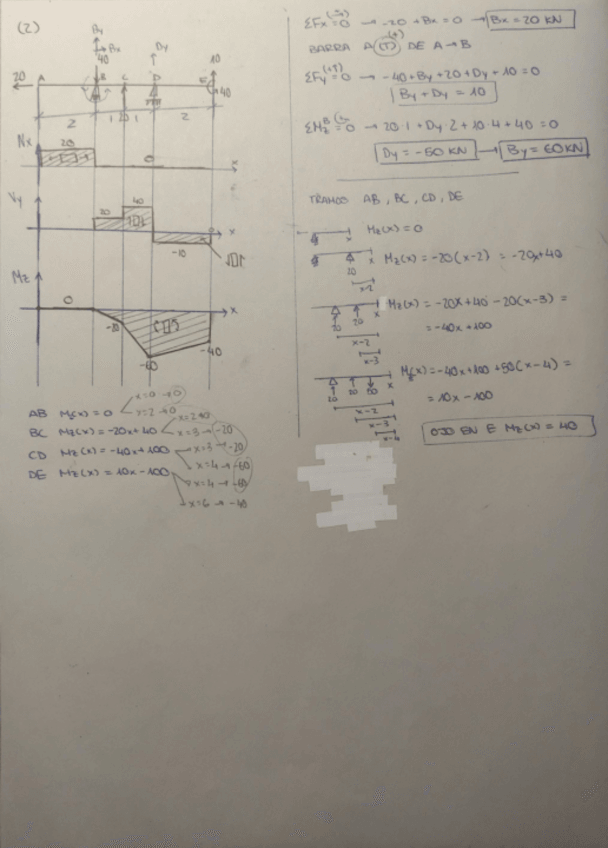 (2)
By
40
Bx
Dy
10
20
A
B
C
D
E
40
2
1
20
1
2
Nx
20
0
x
Vy
20
40
x
-10
Mz
0
x
-20
-60
-40
AB Mz(x) = 0
x=0 → 0
x=2 → 0
BC Mz(x) = -20x+40
x=2 → 0
x=3 → -20
CD Mz(x) = -40x+100
x=3 → -20
x=4 → -60
DE Mz(x) = 10x-100
x=4 → -60
x=6 → -40
ΣFx=0 → -20 + Bx = 0 → Bx = 20 KN
BARRA A (T) DE A → B
(+)
ΣFy=0 → -40+By+20+Dy+10=0
By + Dy = 10
ΣMz^B=0 → 20·1 + Dy·2 + 10·4 + 40 = 0
Dy = -50 KN → By = 60KN
TRAMOS AB, BC, CD, DE
x
Mz(x) = 0
x
20
x-2
Mz(x) = -20(x-2) = -20x+40
x
20
20
x-2
x-3
Mz(x) = -20x+40 -20(x-3) =
= -40x+100
x
20
20
50
x-2
x-3
x-4
Mz(x) = -40x+100 +50(x-4) =
= 10x-100
OJO EN E Mz(x) = 40